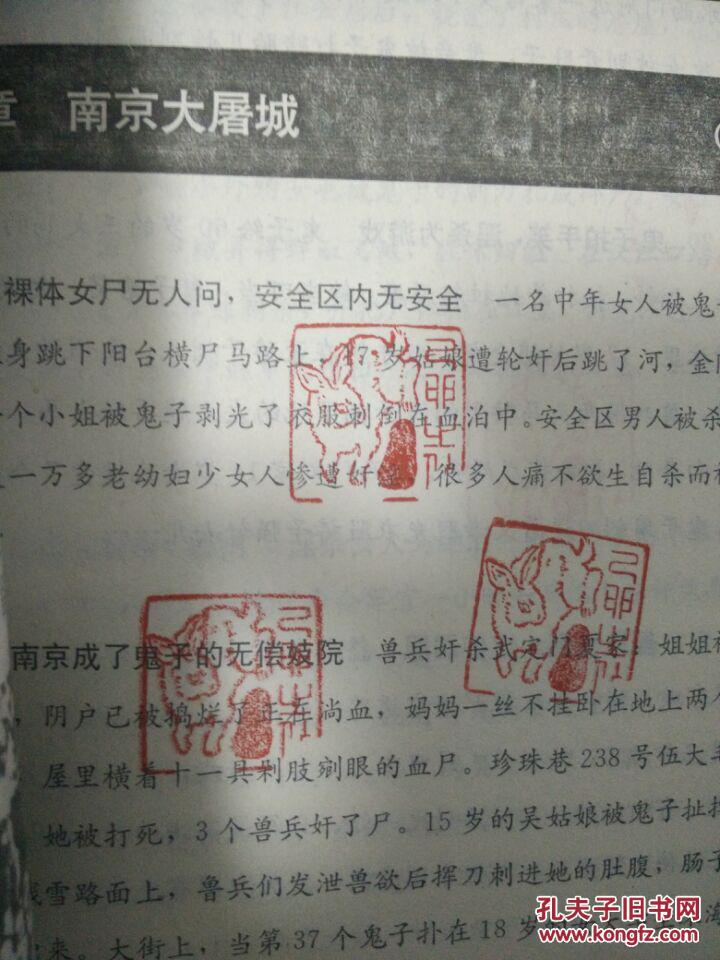 章 南京大屠城
裸体女尸无人问，安全区内无安全 一名中年女人被鬼
身跳下阳台横尸马路上，17岁姑娘遭轮奸后跳了河，金
个小姐被鬼子剥光了衣服刺倒在血泊中。安全区男人被杀
一万多老幼妇少女人惨遭奸淫，很多人痛不欲生自杀而
南京成了鬼子的无偿妓院 兽兵奸杀武定门夏家：姐姐被
，阴户已被捣烂了正在淌血，妈妈一丝不挂卧在地上两
屋里横着十一具剁肢剜眼的血尸。珍珠巷238号伍大毛
她被打死，3个兽兵奸了尸。15岁的吴姑娘被鬼子扯
雪路面上，兽兵们发泄兽欲后挥刀刺进她的肚腹，肠子
来。大街上，当第37个鬼子扑在18岁
孔夫子旧书网
www.kongfz.com